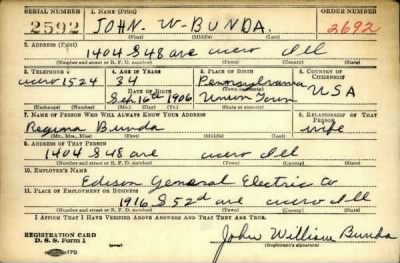 SERIAL NUMBER 1. NAME (Print) ORDER NUMBER
2592 JOHN - W - BUNDA. 2692
(First) (Middle) (Last)
2. ADDRESS (Print)
1404 S 48 ave cicero Ill
(Number and street or R. F. D. number) (Town) (County) (State)
3. TELEPHONE 4. AGE IN YEARS 5. PLACE OF BIRTH 6. COUNTRY OF CITIZENSHIP
cicero 1524 34 Pennsylvania
DATE OF BIRTH (Town or county)
Sep 16th 1906 Union Town USA
(Exchange) (Number) (Mo.) (Day) (Yr.) (State or country)
7. NAME OF PERSON WHO WILL ALWAYS KNOW YOUR ADDRESS 8. RELATIONSHIP OF THAT PERSON
Regina Bunda wife
(Mr., Mrs., Miss) (First) (Middle) (Last)
9. ADDRESS OF THAT PERSON
1404 S 48 ave cicero Ill
(Number and street or R. F. D. number) (Town) (County) (State)
10. EMPLOYER'S NAME
Edison General Electric Co
11. PLACE OF EMPLOYMENT OR BUSINESS
1916 S 52d ave cicero Ill
(Number and street or R. F. D. number) (Town) (County) (State)
I AFFIRM THAT I HAVE VERIFIED ABOVE ANSWERS AND THAT THEY ARE TRUE.
REGISTRATION CARD
D. S. S. Form 1 John William Bunda
(Registrant's signature)